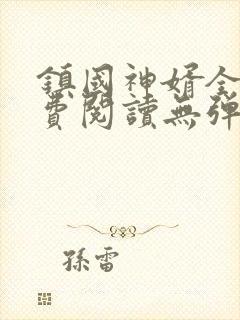 鎮國神婿全
費閱讀無彈
孫雷